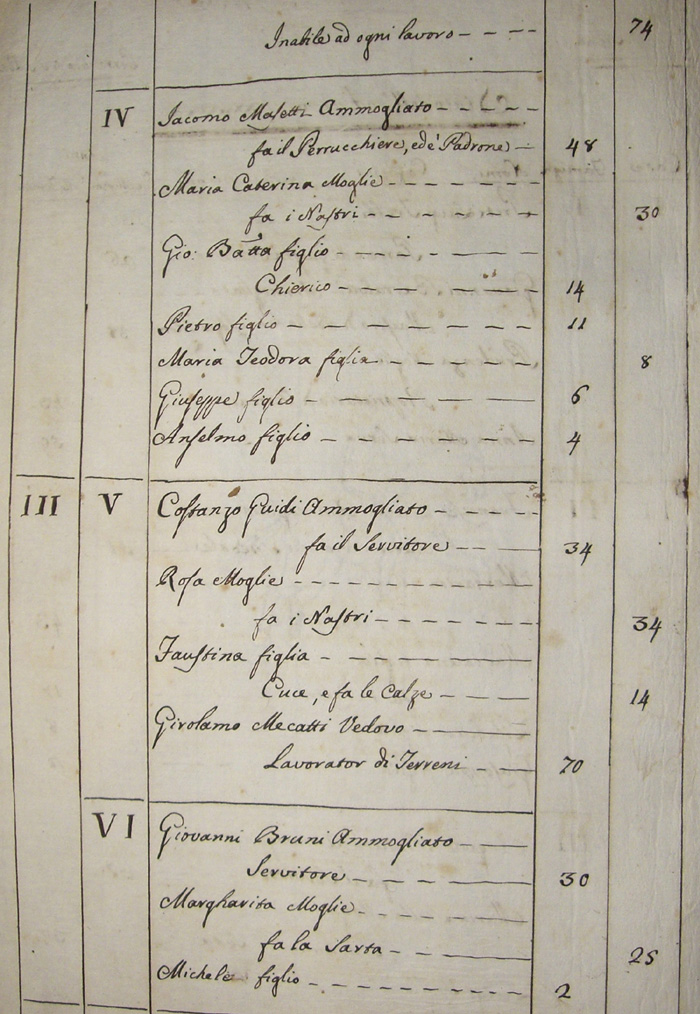 Inabile ad ogni lavoro 74
IV Iacomo Masetti Ammogliato
fa il Perrucchiere, ed è Padrone 48
Maria Caterina Moglie
fa i Nastri 30
Gio: Batta figlio
Chierico 14
Pietro figlio 11
Maria Teodora figlia 8
Giuseppe figlio 6
Anselmo figlio 4
III V Costanzo Guidi Ammogliato
fa il Servitore 34
Rosa Moglie
fa i Nastri 34
Faustina figlia
Cuce, e fa le Calze 14
Girolamo Mecatti Vedovo
Lavorator di Terreni 70
VI Giovanni Bruni Ammogliato
Servitore 30
Margharita Moglie
fa la Sarta 25
Michele figlio 2